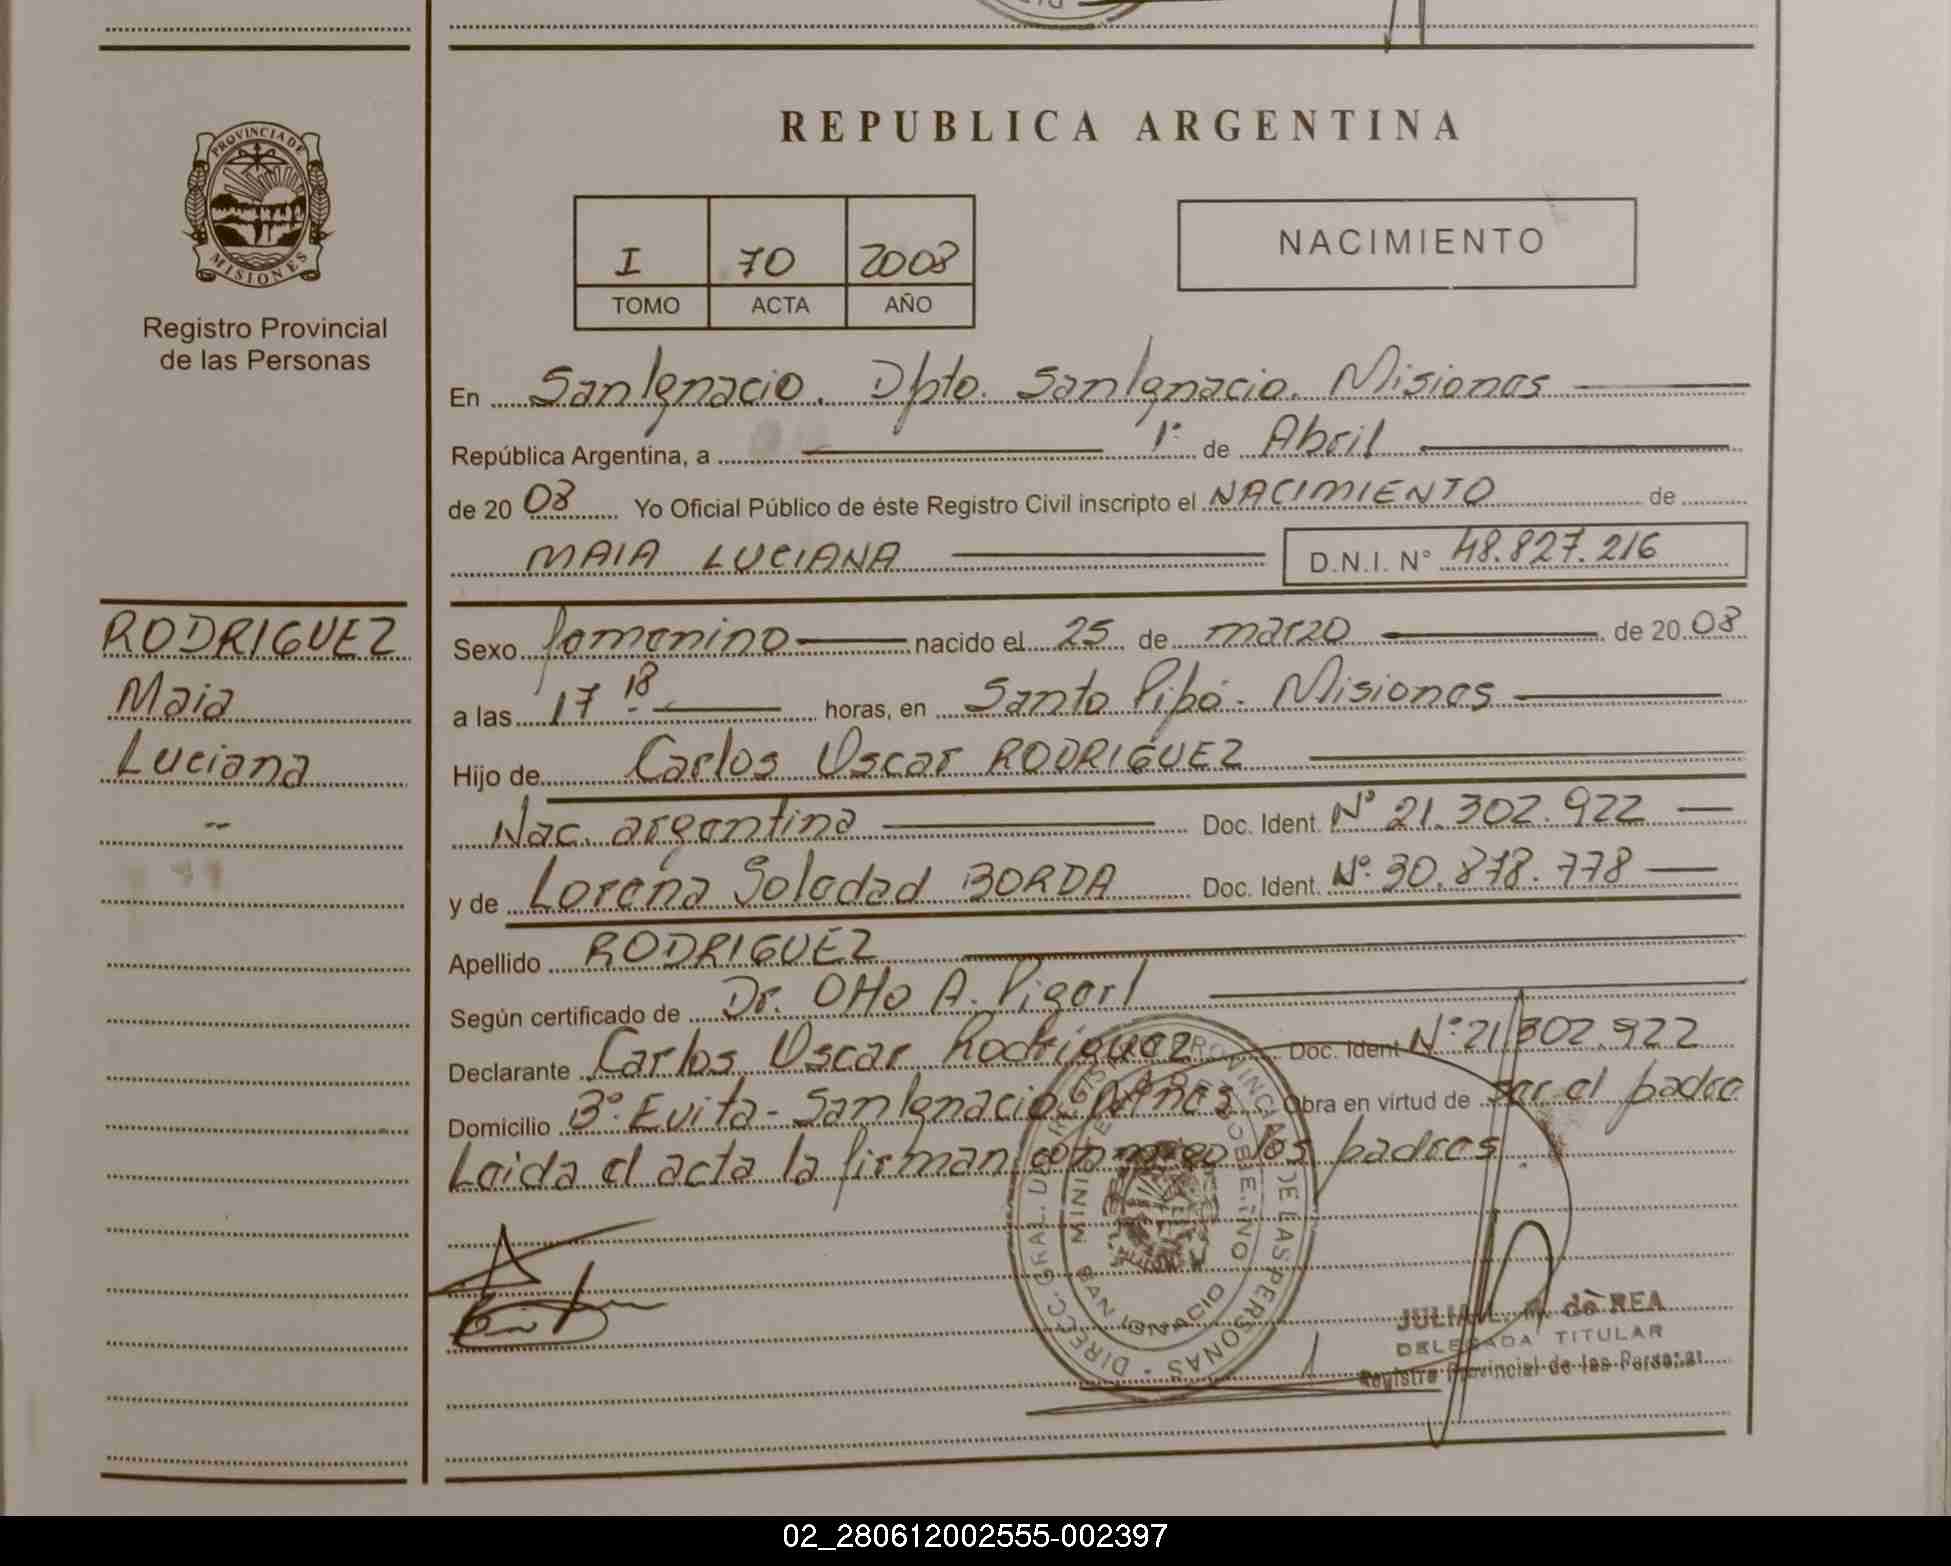 REPUBLICA ARGENTINA
PROVINCIA DE
MISIONES
Registro Provincial
de las Personas
I 70 2008
TOMO ACTA AÑO
NACIMIENTO
En San Ignacio. Dpto. San Ignacio. Misiones
República Argentina, a 1º de Abril
de 20 08 Yo Oficial Público de éste Registro Civil inscripto el NACIMIENTO de
MAIA LUCIANA D.N.I. Nº 48.827.216
RODRIGUEZ
Maia
Luciana
Sexo femenino nacido el 25 de marzo de 20 08
a las 17 18 horas, en Santo Pipó - Misiones
Hijo de Carlos Oscar RODRIGUEZ
Nac. argentina Doc. Ident. Nº 21.302.922
y de Lorena Soledad BORDA Doc. Ident. Nº 30.878.778
Apellido RODRIGUEZ
Según certificado de Dr. Otto A.
Declarante Carlos Oscar Rodriguez Doc. Ident Nº 21.302.922
Domicilio Bº. Evita - San Ignacio Mnes Obra en virtud de ser el padre
Leida el acta la firman conmigo los padres.
DIRECC. GRAL. DEL REGISTRO PROVINCIAL DE LAS PERSONAS
MINISTERIO DE GOBIERNO
SAN IGNACIO
de REA
DELEGADA TITULAR
Registro Provincial de las Personas
02_280612002555-002397